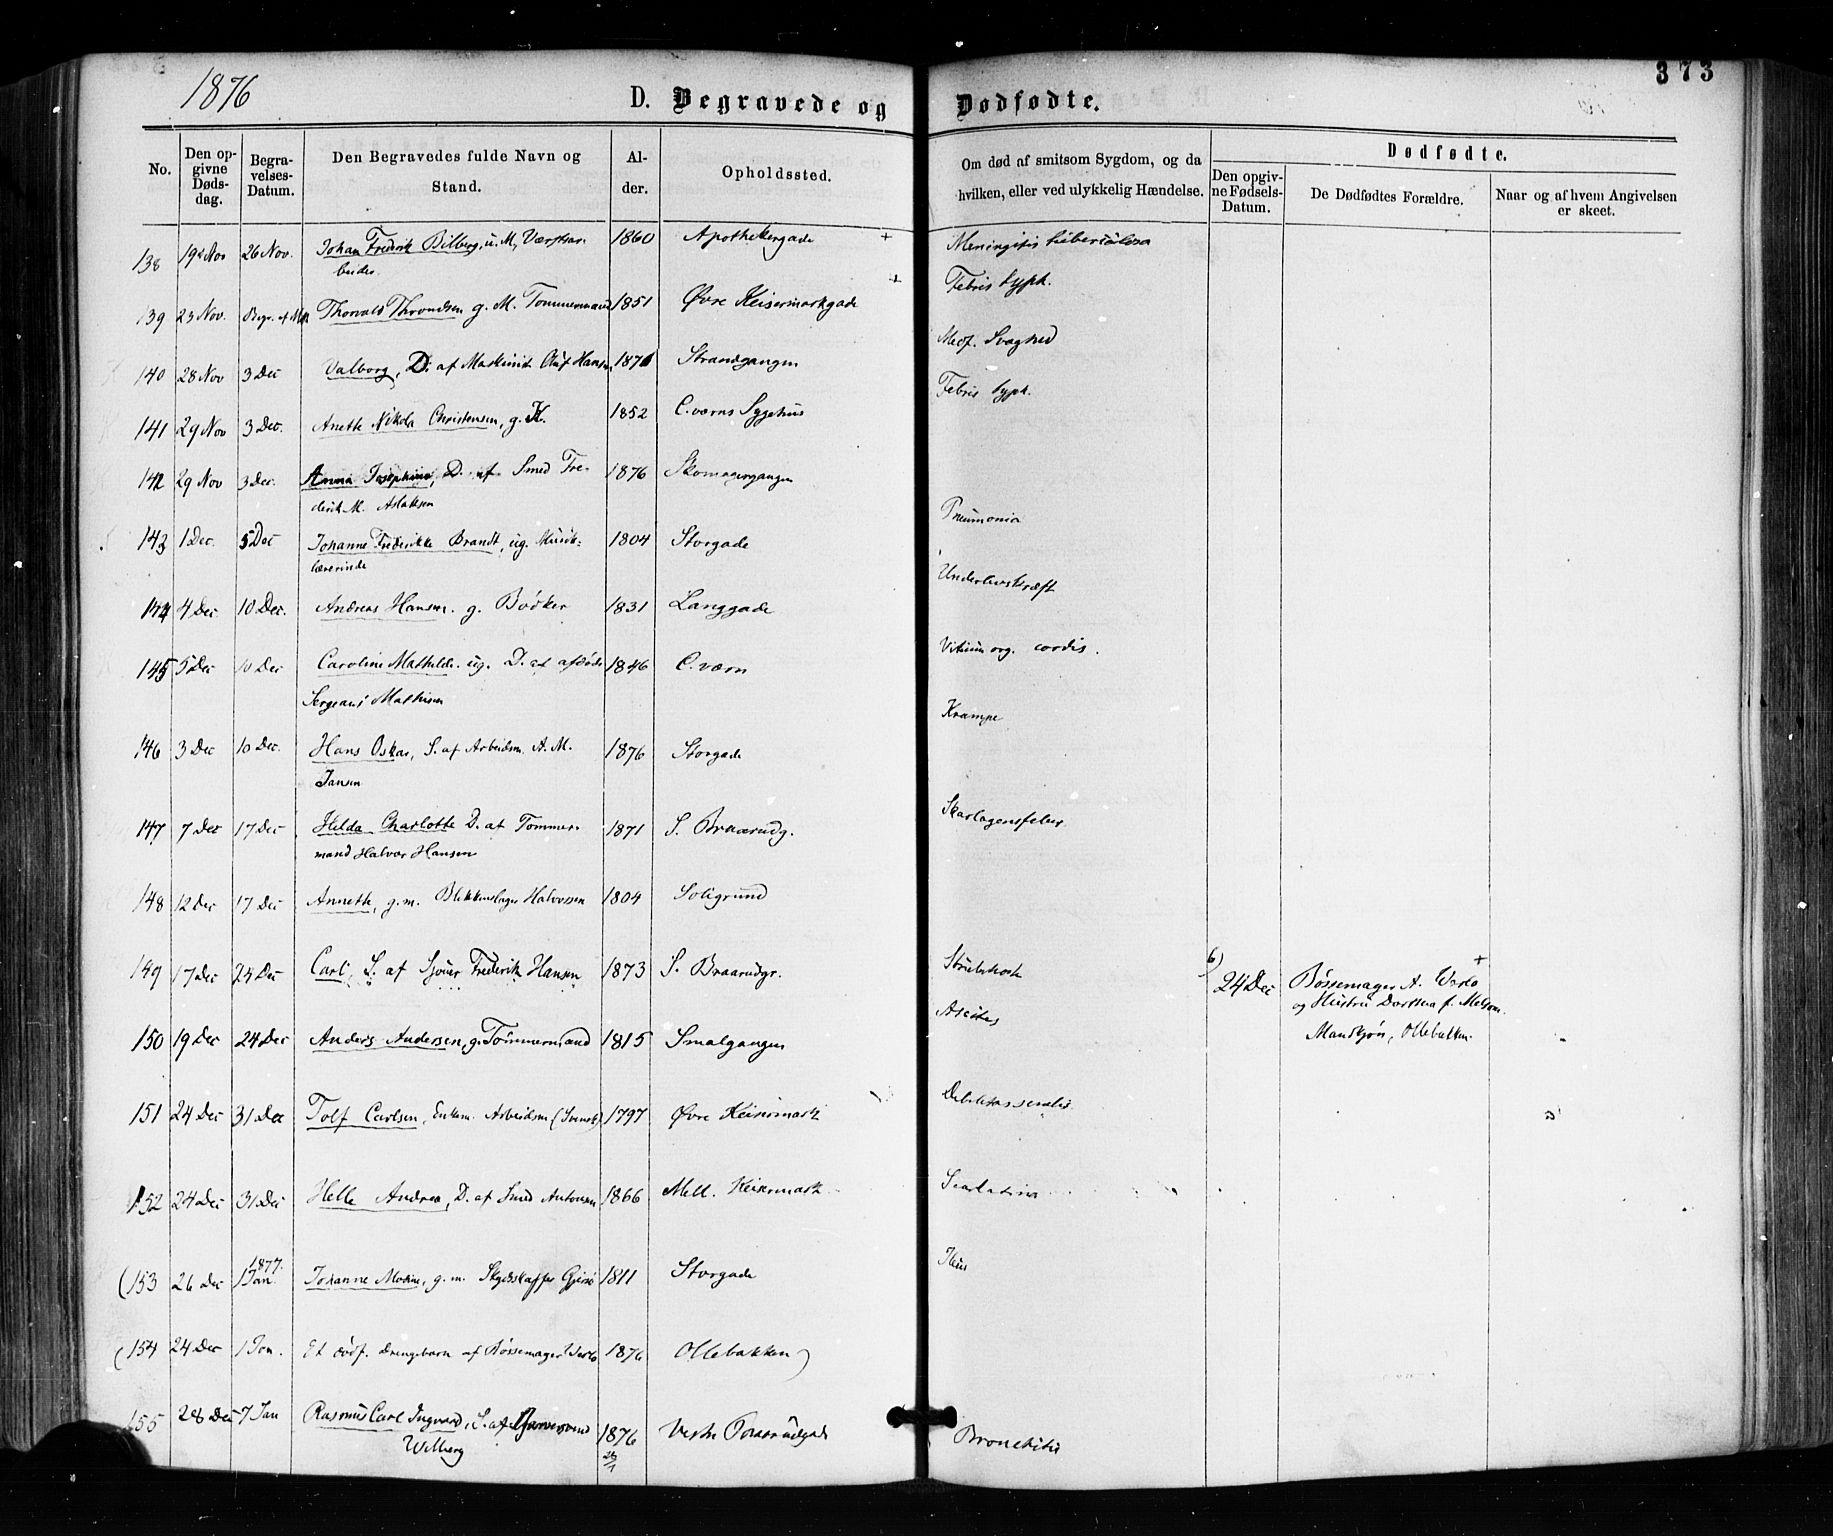 373
1876
D. Begravede og Dødfødte.
No.
Den opgivne Dødsdag.
Begravelses-Datum.
Den Begravedes fulde Navn og Stand.
Alder.
Opholdssted.
Om død af smitsom Sygdom, og da hvilken, eller ved ulykkelig Hændelse.
Dødfødte.
Den opgivne Fødsels-Datum.
De Dødfødtes Forældre.
Naar og af hvem Angivelsen er skeet.
138 19 Nov 26 Nov. Johan Frederik Bilberg, u. M, Værftsar- 1860 Apothekergade + Meningitis tuberculosa
beider
139 23 Nov. Begr. af Thorvald Throndsen g. M. Tømmermand 1851 Øvre Keisermarkgade + Febris typh.
140 28 Nov 3 Dec Valborg, D. af Maskinist Oluf Hansen 1871 Strandgangen Medf. Svaghed
141 29 Nov 3 Dec. Anette Nikola Christensen, g. K. 1852 C. værns Sygehus Febris typh.
142 29 Nov 3 Dec. Anna Josephine, D. af Smed Fre- 1876 Skomagergangen
derik M. Aslaksen
143 1 Dec. 5 Dec Johanne Frederikke Brandt, ug. Musik- 1804 Storgade Pneumonia
lærerinde
144 4 Dec 10 Dec. Andreas Hansen. g. Bødker 1831 Langgade Underlivskræft
145 5 Dec 10 Dec Caroline Mathilde. ug. D. af afdøde 1846 C. værn Vitium org. cordis.
Sergeant Mathisen
146 3 Dec 10 Dec. Hans Oskar, S. af Arbeidsm. A. M. 1876 Storgade Krampe
Jansen
147 7 Dec 17 Dec Helda Charlotte D. af Tømmer- 1871 S. Braarudg. Skarlagensfeber
mand Halvor Hansen
148 12 Dec 17 Dec Annette, g. m. Blikkenslager Halvorsen 1804 Soligrund
149 17 Dec 24 Dec Carl, S. af Sjöuer Frederik Hansen 1873 S. Braarudgr. Strubehoste
6) 24 Dec Bøssemager A. +
og Hustru Dorthea f. Melsom.
Mandkjøn, Ollebakken.
150 19 Dec 24 Dec Anders Andersen, g. Tømmermand 1815 Smalgangen Ascites
151 24 Dec 31 Dec Tolf Carlsen, Enkem. Arbeidsm (Svensk) 1797 Øvre Keisermark Debilitas senilis
152 24 Dec 31 Dec Helle Andrea, D. af Smed Antonsen 1866 Mell. Keisermark Scarlatina
(153 26 Dec 1 Jan. 1877. Johanne Marie, g. m. Skydsskaffer 1811 Storgade Ileus
(154 24 Dec 1 Jan. Et dødf. Drengebarn af Bøssemager 1876 Ollebakken)
155 28 Dec 7 Jan Rasmus Carl Ingvard, S. af Garversvend 1876 Vestre Braarudgade Bronchitis
Wilberg 26/1